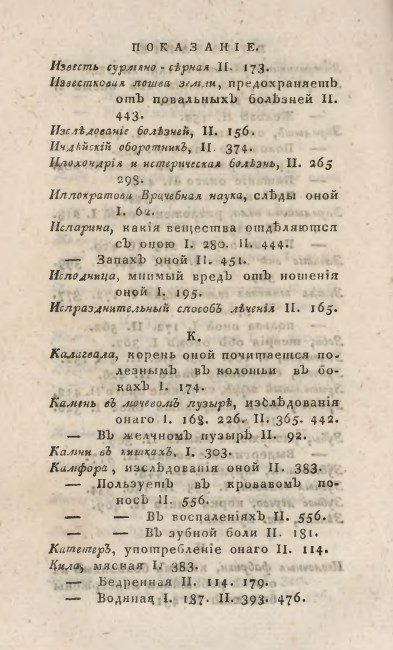 ПОКАЗАНІЕ.
Известь сурмяно-сѣрная II. 173.
Известковая пошва земли, предохраняетъ
отъ повальныхъ болѣзней II.
443.
Изслѣдованіе болѣзней, II. 156.
Индѣйскій оборотникъ, II. 374.
Ипохондрія и истерическая болѣзнь, II. 265
298.
Иппократова Врачебная наука, слѣды оной
I. 62.
Испарина, какія вещества отдѣляются
съ оною I. 280. II. 444.
— Запахъ оной II. 451.
Исподница, мнимый вредъ отъ ношенія
оной I. 195.
Испразднительный способъ лѣченія II. 165.
К.
Калагвала, корень оной почитается по-
лезнымъ въ колотьи въ бо-
кахъ I. 174.
Камень въ мочевомъ пузырѣ, изслѣдованія
онаго I. 168. 226. II. 365. 442.
— Въ желчномъ пузырѣ II. 92.
Камни въ кишкахъ, I. 393.
Камфора, изслѣдованія оной II. 383.
— Пользуетъ въ кровавомъ по-
носѣ II. 556.
— — Въ воспаленіяхъ II. 556.
— — Въ зубной боли II. 181.
Катетеръ, употребленіе онаго II. 114.
Кила, мясная I. 383.
— Бедренная II. 114. 179.
— Водяная I. 187. II. 393. 476.